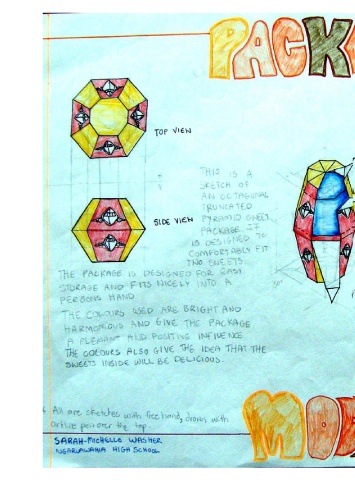 PACK
TOP VIEW
SIDE VIEW
THIS IS A
SKETCH OF
AN OCTAGONAL
TRUNCATED
PYRAMID SWEET
PACKAGE. IT
IS DESIGNED TO
COMFORTABLY FIT
TWO SWEETS.
THE PACKAGE IS DESIGNED FOR EASY
STORAGE AND FITS NICELY INTO A
PERSONS HAND.
THE COLOURS USED ARE BRIGHT AND
HARMONIOUS AND GIVE THE PACKAGE
A PLEASANT AND POSITIVE INFLUENCE.
THE COLOURS ALSO GIVE THE IDEA THAT THE
SWEETS INSIDE WILL BE DELICIOUS.
MO
* All are sketches with free hand, drawn with
artline pen over the top.
SARAH-MICHELLE WASHER
NGARUAWAHIA HIGH SCHOOL